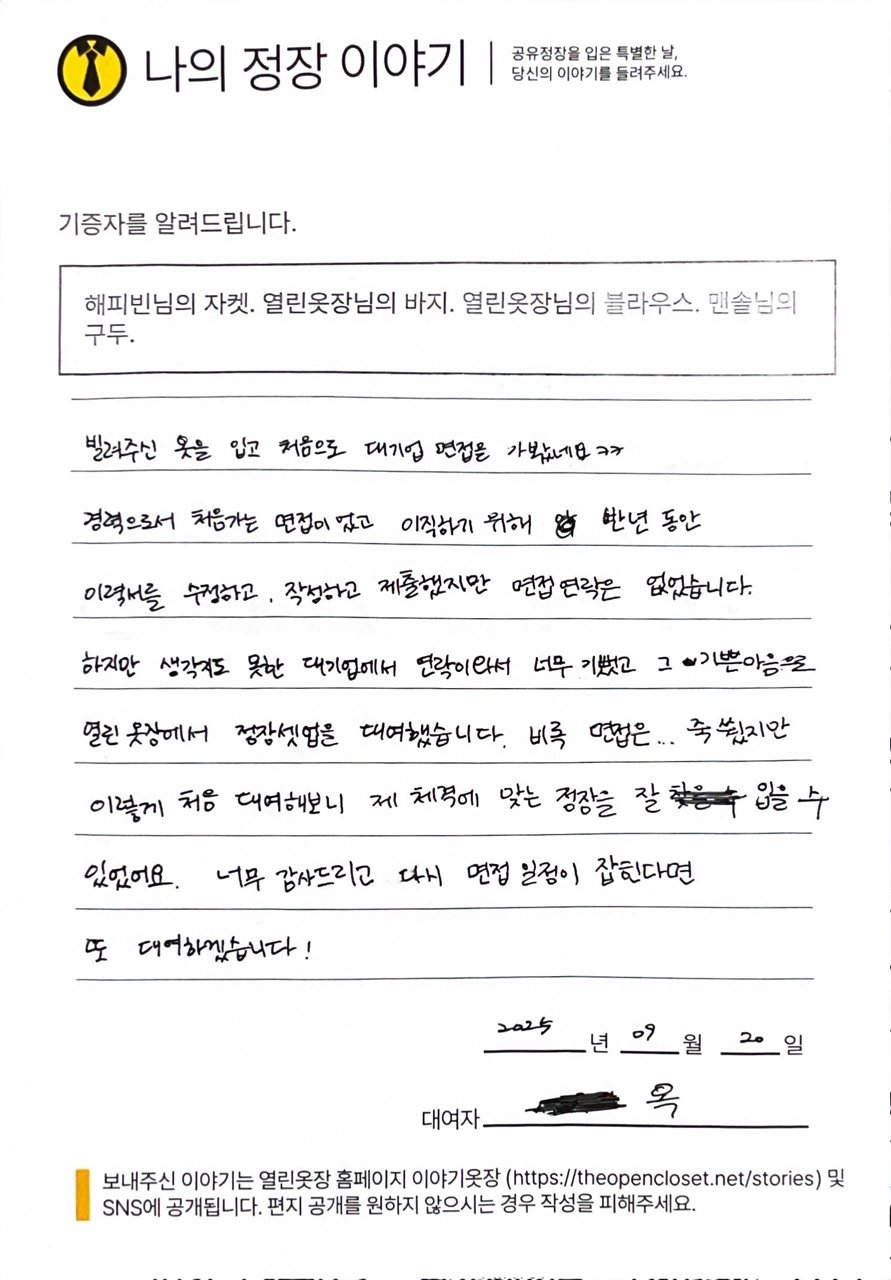 나의 정장 이야기
공유정장을 입은 특별한 날,
당신의 이야기를 들려주세요.
기증자를 알려드립니다.
해피빈님의 자켓. 열린옷장님의 바지. 열린옷장님의 블라우스. 맨솔님의
구두.
빌려주신 옷을 입고 처음으로 대기업 면접을 가봤네요ㅋㅋ
경력으로서 처음가는 면접이었고 이직하기 위해 반년 동안
이력서를 수정하고, 작성하고 제출했지만 면접연락은 없었습니다.
하지만 생각지도 못한 대기업에서 연락이와서 너무 기뻤고 그 기쁜마음으로
열린옷장에서 정장셋업을 대여했습니다. 비록 면접은... 죽쒔지만
이렇게 처음 대여해보니 제 체격에 맞는 정장을 잘 입을 수
있었어요. 너무 감사드리고 다시 면접 일정이 잡힌다면
또 대여하겠습니다!
2025 년 09 월 20 일
대여자 옥
보내주신 이야기는 열린옷장 홈페이지 이야기옷장 (https://theopencloset.net/stories) 및
SNS에 공개됩니다. 편지 공개를 원하지 않으시는 경우 작성을 피해주세요.